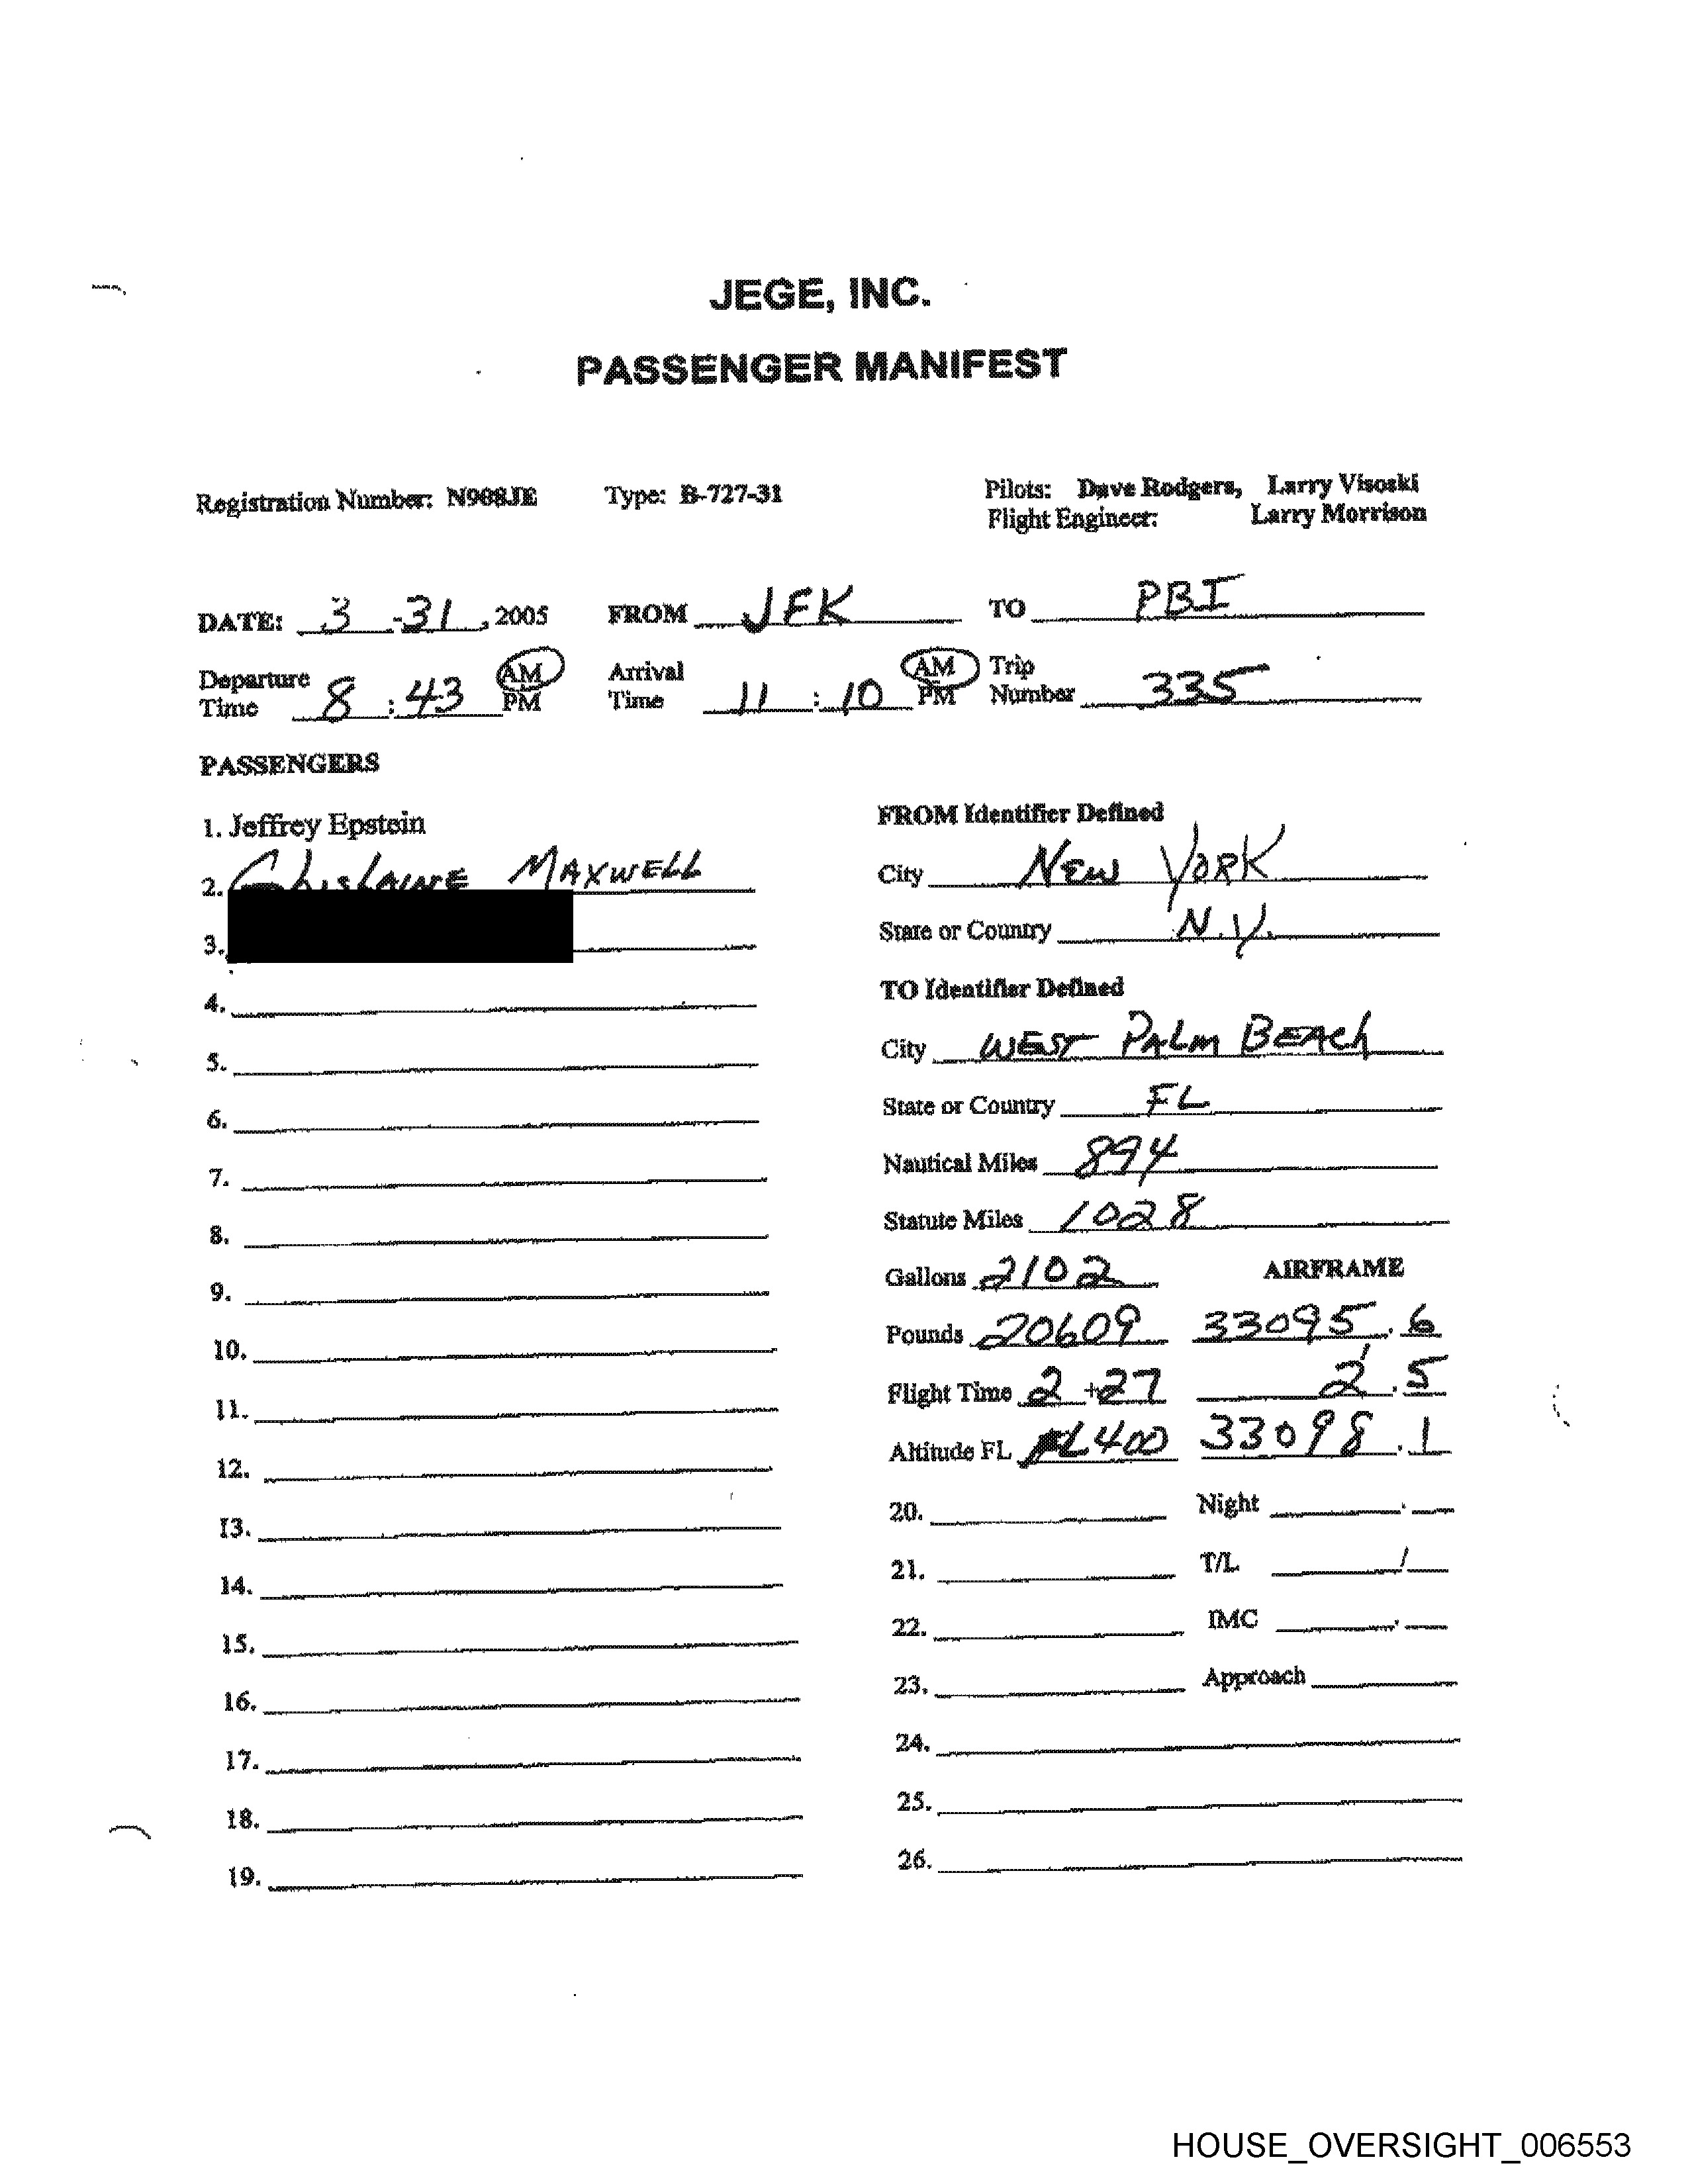 JEGE, INC.
PASSENGER MANIFEST
Registration Number: N908JE Type: B-727-31 Pilots: Dave Rodgers, Larry Visoski
Flight Engineer: Larry Morrison
DATE: 3 - 31, 2005 FROM JFK TO PBI
Departure Time 8 : 43 AM PM Arrival Time 11 : 10 AM PM Trip Number 335
PASSENGERS
1. Jeffrey Epstein
2. Ghislaine Maxwell
3.
4.
5.
6.
7.
8.
9.
10.
11.
12.
13.
14.
15.
16.
17.
18.
19.
FROM Identifier Defined
City New York
State or Country N.Y.
TO Identifier Defined
City West Palm Beach
State or Country FL
Nautical Miles 894
Statute Miles 1028
Gallons 2102 AIRFRAME
Pounds 20609 33095.6
Flight Time 2 + 27 2.5
Altitude FL FL400 33098.1
20. Night
21. T/L /
22. IMC
23. Approach
24.
25.
26.
HOUSE_OVERSIGHT_006553